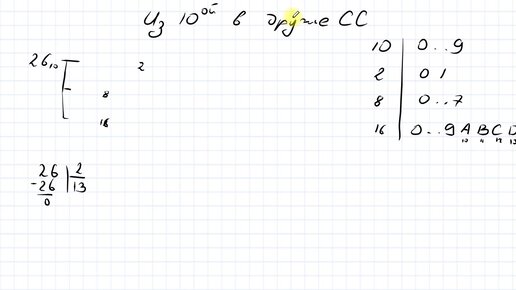 Из 10ой в другие СС
10 0..9
26₁₀ 2
2 0 1
8 8 0..7
16 16 0..9 A B C D
10 11 12 13
26 2
-26 13
0